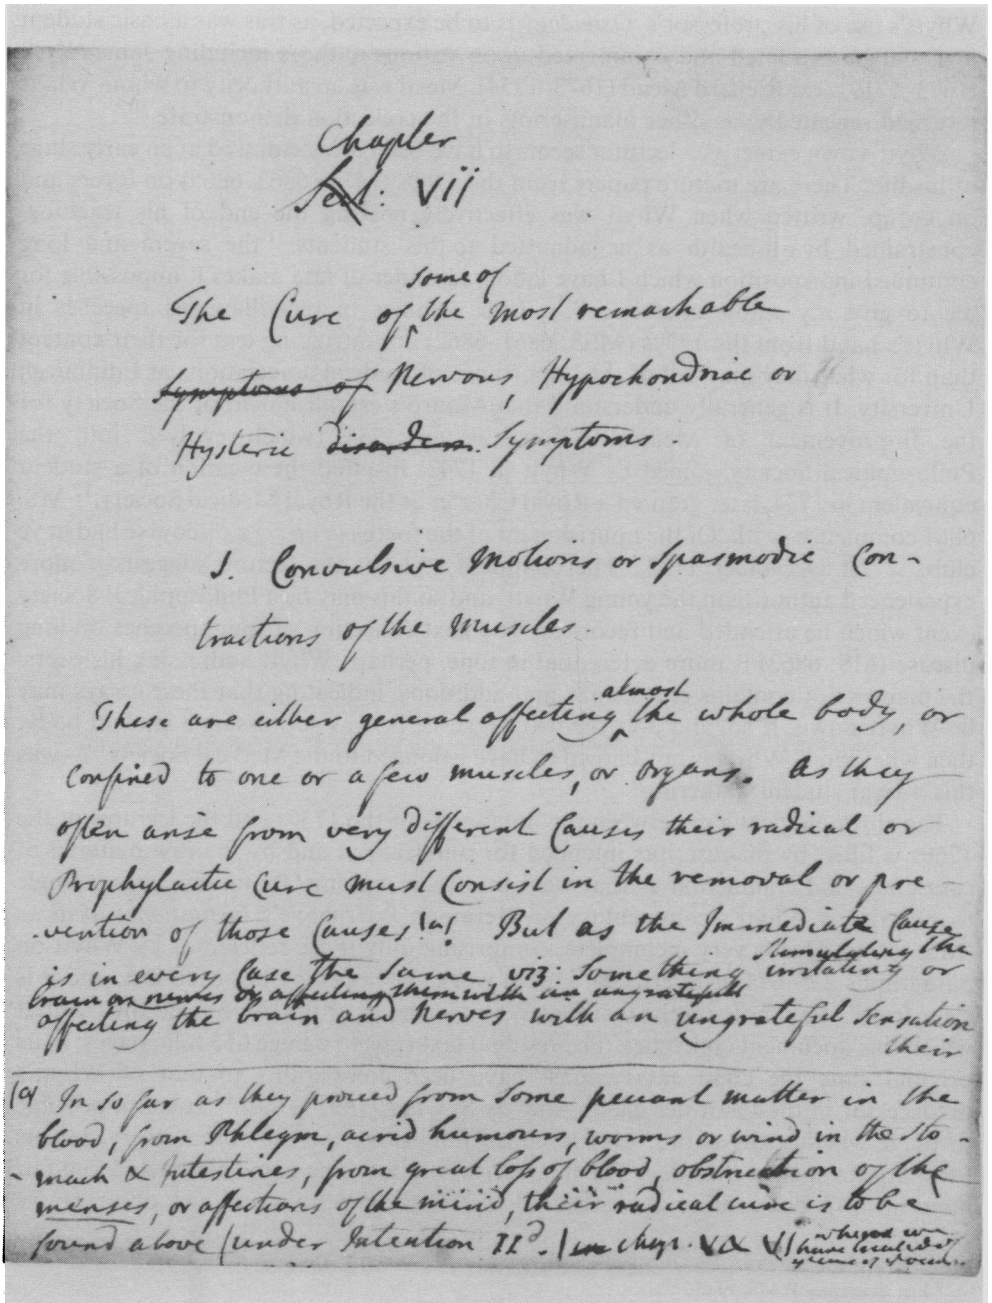 Chapter
Sect. VII
some of
The Cure of the most remarkable
symptoms of Nervous, Hypochondriac or
Hysteric disorders. Symptoms.
1. Convulsive Motions or Spasmodic Con-
tractions of the Muscles
almost
These are either general affecting the whole body, or
confined to one or a few muscles, or organs. As they
often arise from very different Causes their radical or
Prophylactic Cure must consist in the removal or pre
vention of those Causes (a) But as the Immediate Cause
stimulating the
is in every Case the same viz: Something irritating or
brain or nerves or affecting them with an ungratefull
affecting the brain and Nerves with an ungrateful Sensation
their
(a) In so far as they proceed from some peccant matter in the
blood, from Phlegm, acrid humours, worms or wind in the sto-
mach & Intestines, from great loss of blood, obstruction of the
menses, or affections of the mind, their radical cure is to be
found above (under Intention IId. in chap. V & VI where we
have treated of